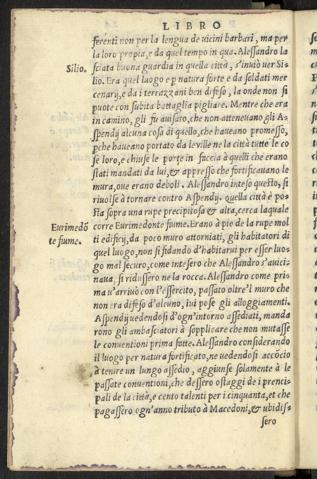 LIBRO
ferenti non per la lengua de uicini barbari, ma per
la loro propia, e da quel tempo in qua. Alessandro la
sciata buona guardia in quella città, s'inuiò uer Si-
Silio.
lio. Era quel luogo e p natura forte e da soldati mer
cenarij, e da i terrazzani ben difeso, la onde non si
puote con subita battaglia pigliare. Mentre che era
in camino, gli fu auisato, che non attenevano gli A-
spendij alcuna cosa di quello, che haueano promesso,
pche haueano portato da le ville ne la città tutte le co
se loro, e chiuse le porte in faccia à quelli che erano
stati mandati da lui, & appresso che fortificauano le
mura, oue erano deboli. Alessandro inteso questo, si
riuolse à tornare contro Aspendij. Quella città è po-
sta sopra una rupe precipitosa & alta, cerca laquale
Eurimedō
te fiume.
corre Eurimedonte fiume. Erano à piè de la rupe mol
ti edificij, da poco muro attorniati, gli habitatori di
quel luogo, non si fidando d'habitarui per esser luo-
go mal securo, come intesero che Alessandro s'auici-
naua, si ridussero ne la rocca. Alessandro come pri-
ma u'arriuò con l'essercito, passato oltre'l muro che
non era difeso d'alcuno, iui pose gli alloggiamenti.
Aspendij uedendosi d'ogn'intorno assediati, manda
rono gli ambasciatori à sopplicare che non mutasse
le conuentioni prima fatte. Alessandro considerando
il luogo per natura fortificato, ne uedendosi accōcio
à tenere un lungo assedio, aggiunse solamente à le
passate conuentioni, che dessero ostaggi de i prenci-
pali de la città, e cento talenti per i cinquanta, et che
pagassero ogn'anno tributo à Macedoni, & ubidis-
sero